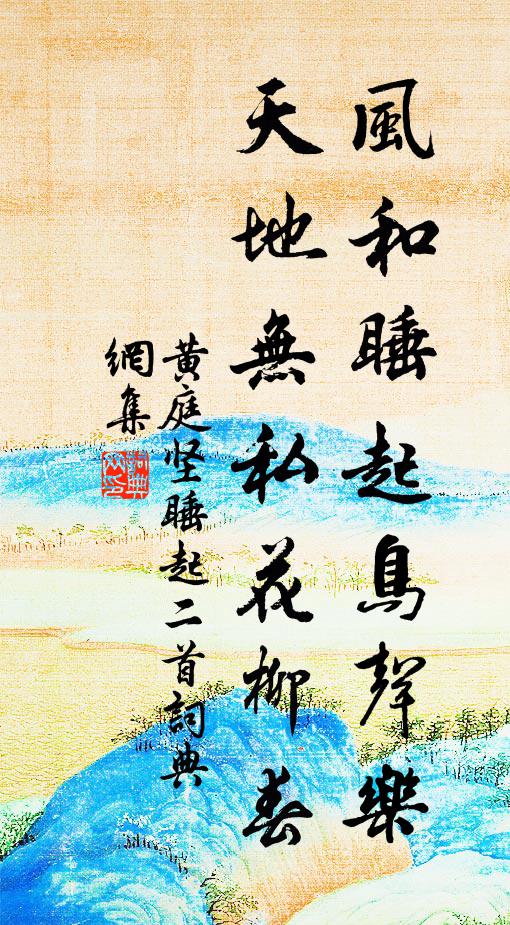 風和睡起鳥聲樂
天地無私花柳春
黄庭坚睡起二首詞典
網集
詞典